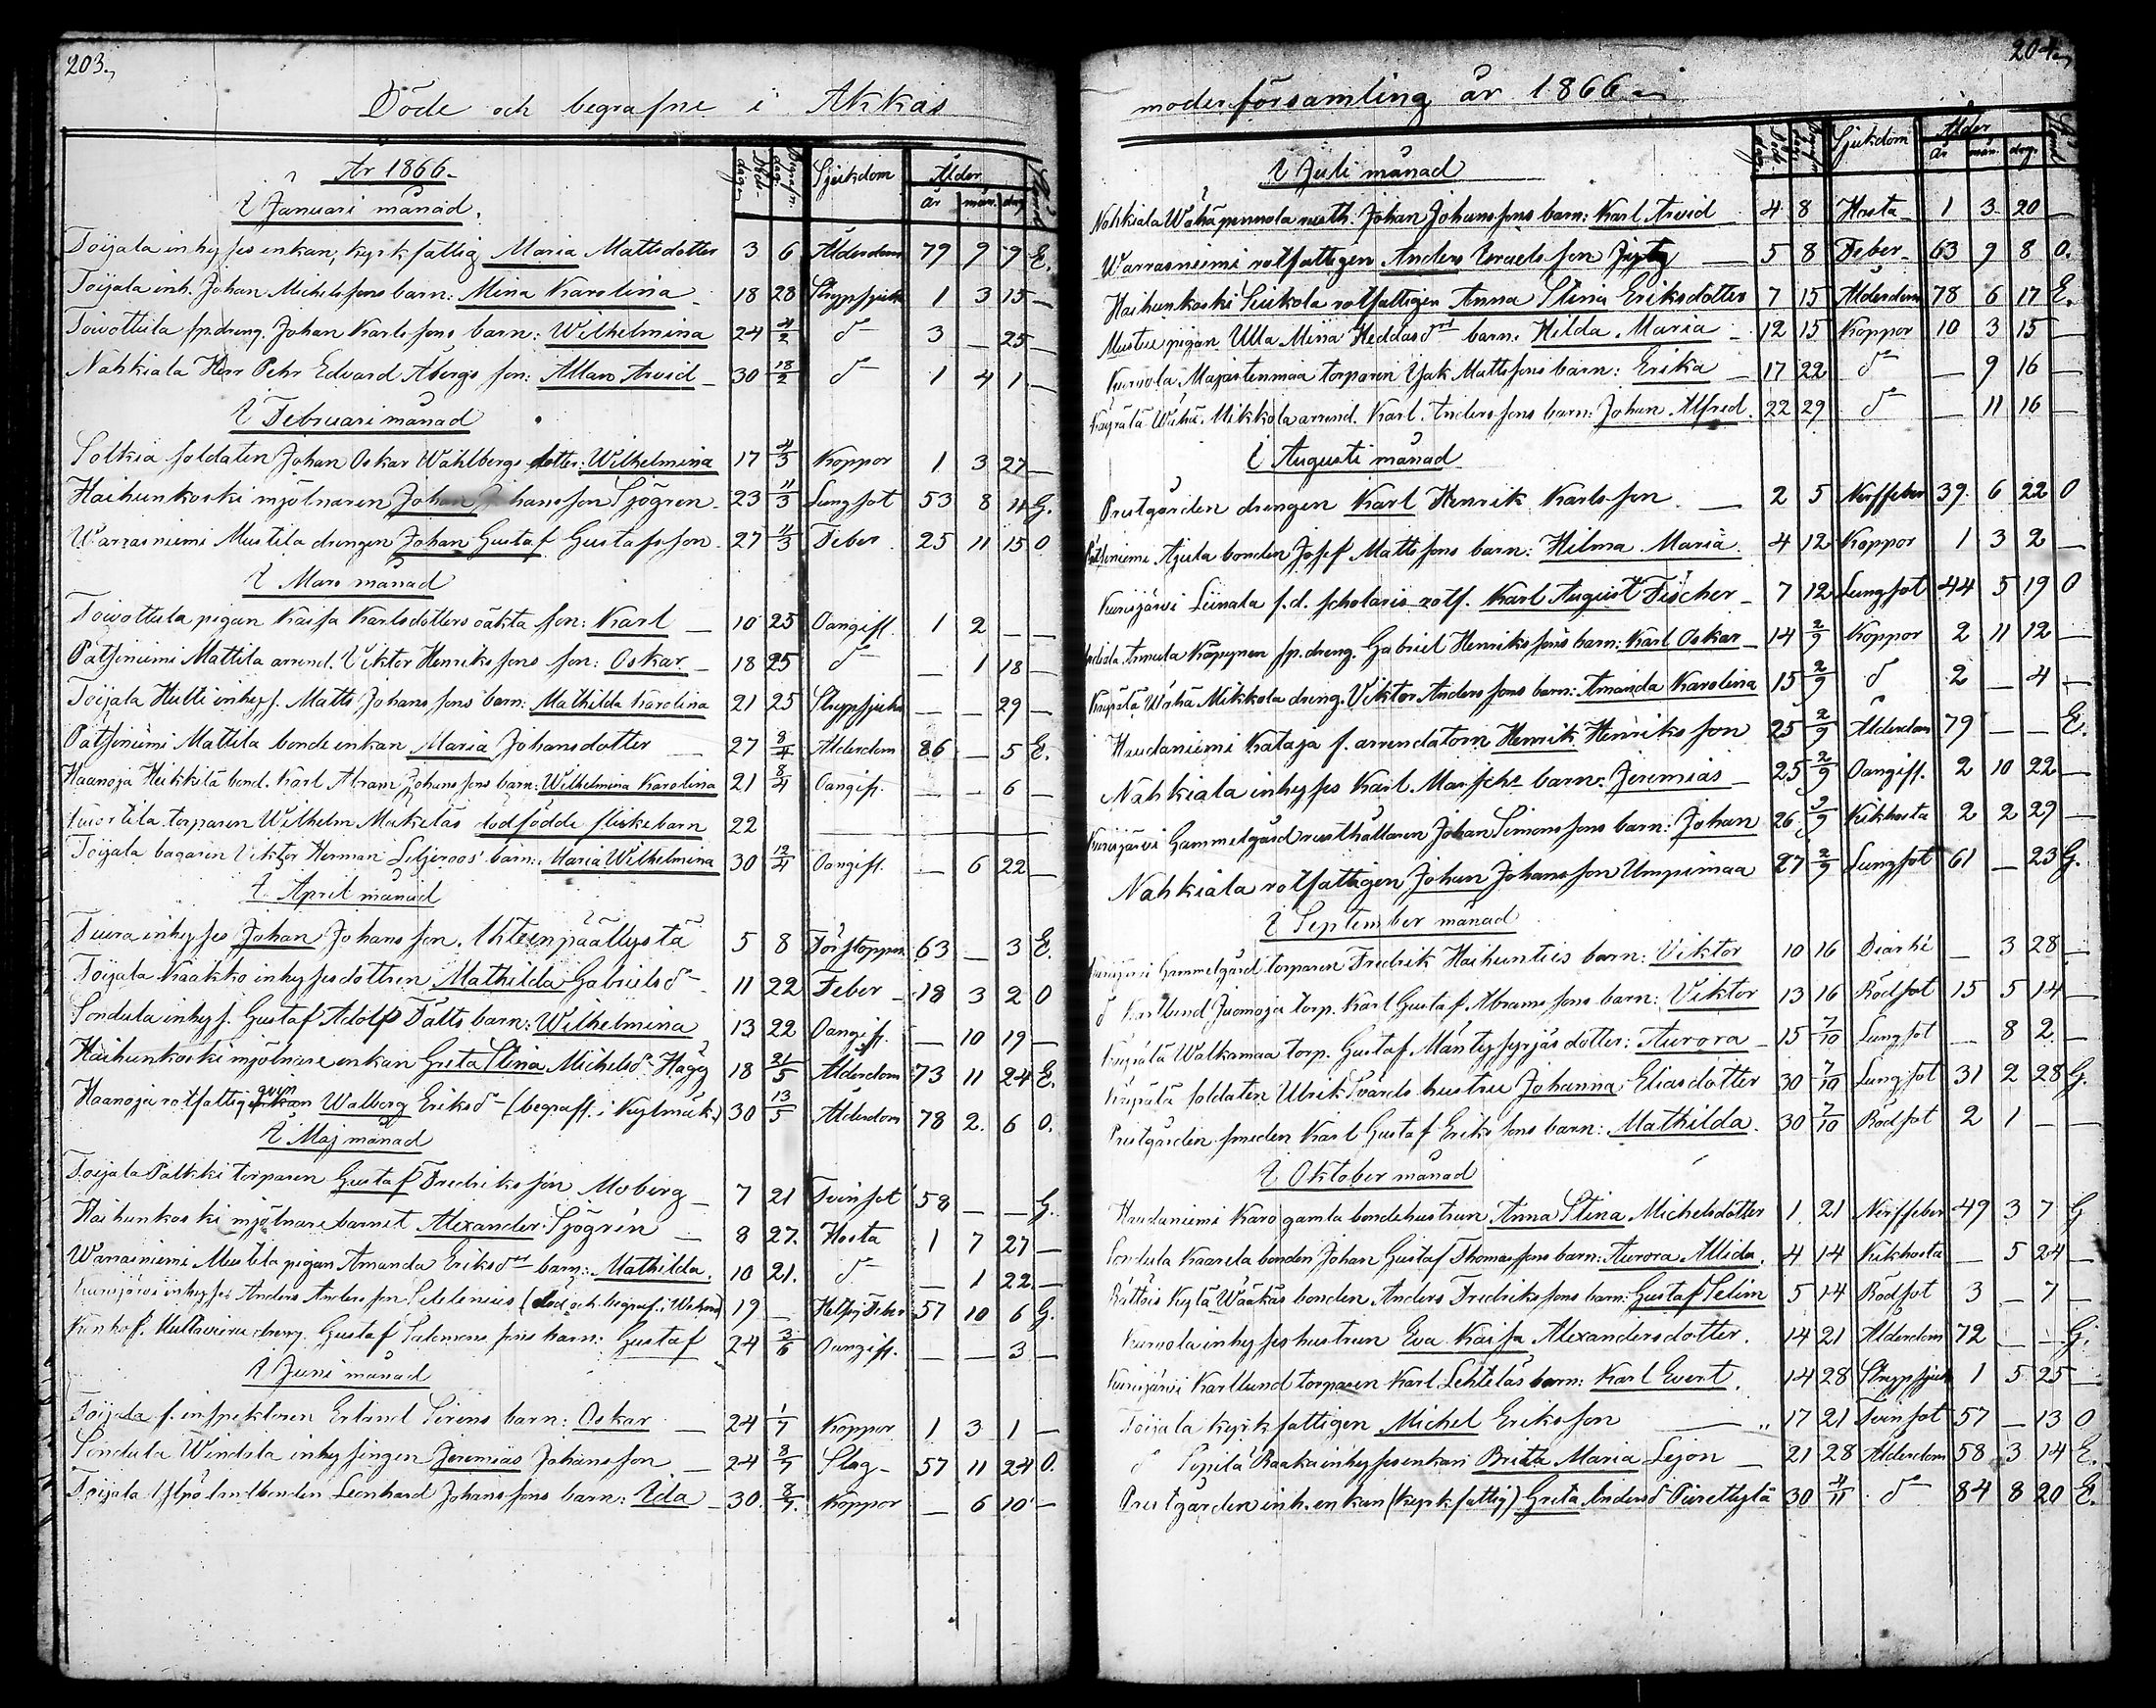 203.
Döde och begrafne i Akkas
Död dag. Begrafn. dag. Sjukdom Ålder år mån. dag. Stånd
År 1866.
I Januari månad.
Toijala inhyses enkan, kyrkfattig Maria Mattsdotter 3 6 Ålderdom 79 9 9 E.
Toijala inh. Johan Michelssons barn: Mina Karolina 18 28 Strypsjuka 1 3 15 —
Toivottula sp.dreng. Johan Karlssons barn: Wilhelmina 24 4/2 d:o 3 — 25 —
Nahkiala Herr Pehr Edvard Åbergs son: Allan Arvid 30 18/2 d:o 1 4 1 —
I Februari månad
Sotkia soldaten Johan Oskar Wahlbergs dotter: Wilhelmina 17 4/3 Koppor 1 3 27 —
Haihunkoski mjölnaren Johan Johansson Sjögren 23 11/3 Lungsot 53 8 11 G.
Warrasniemi Mustila drengen Johan Gustaf Gustafsson 27 11/3 Feber 25 11 15 O.
I Mars månad
Toivottula pigan Kaisa Karlsdotters oäkta son: Karl — 10 25 Oangift 1 2 — —
Patsiniemi Mattila arrend. Viktor Henrikssons son: Oskar 18 25 d:o — 1 18 —
Toijala Hulti inhys. Matts Johanssons barn: Mathilda Karolina 21 25 Strypsjuka — — 29 —
Patsiniemi Mattila bonde enkan Maria Johansdotter 27 8/4 Ålderdom 86 — 5 E.
Haanoja Heikkilä bond. Karl Abram Johanssons barn: Wilhelmina Karolina 21 8/4 Oangift. — — 6 —
torparen Wilhelm Mäkeläs dödfödde flickebarn 22
Toijala bagaren Viktor Herman Liljeroos' barn: Maria Wilhelmina 30 12/4 Oangift. — 6 22 —
I April månad
inhyses Johan Johansson. 5 8 Förstoppn. 63 — 3 E.
Toijala Kaakko inhysesdottren Mathilda Gabrielsd:r 11 22 Feber 18 3 2 O
Sondula inhys. Gustaf Adolf Fälts barn: Wilhelmina 13 22 Oangift. — 10 19 —
Haihunkoski mjölnare enkan Greta Stina Michelsd:r Hägg 18 21/5 Ålderdom 73 11 24 E.
Haanoja rotfattig qvin Walborg Eriksd:r (begraff. i Kylmäk.) 30 13/5 Ålderdom 78 2. 6 O.
I Maj månad
Toijala Pälkki torparen Gustaf Fredriksson Moberg 7 21 Tvinsot 58 — — G.
Haihunkoski mjölnare barnet Alexander Sjögren 8 27. Hosta 1 7 27 —
Warrasniemi Mustila pigan Amanda Eriksd:rs barn: Mathilda. 10 21. d:o — 1 22 —
Kurisjärvi inhyses Anders Andersson (död och begraf. i ) 19 — 57 10 6 G.
dreng. Gustaf Salomonssons barn: Gustaf 24 3/6 Oangift. — — 3 —
I Juni månad
Toijala f. inspektoren Erland Sirens barn: Oskar 24 1/7 Koppor 1 3 1 —
Sondula Windala inhysingen Jeremias Johansson 24 8/7 Slag 57 11 24 O.
Toijala landbonden Leonhard Johanssons barn: Ida 30. 8/7. Koppor — 6 10 —
204.
moderförsamling år 1866
Död dag. Begrafn. dag Sjukdom Ålder år mån. dag. Stånd
I Juli månad
Nahkiala Wähäpennola rusth. Johan Johanssons barn: Karl Arvid 4 8 Hosta 1 3 20 —
Warrasniemi rotfattigen Anders Israelsson 5 8 Feber 63 9 8 O.
Haihunkoski Seikola rotfattigen Anna Stina Eriksdotter 7 15 Ålderdom 78 6 17 E.
Mustue pigan Ulla Mina Heddasd:rs barn: Hilda Maria 12 15 Koppor 10 3 15 —
Kurvola Majastenmaa torparen Isak Mattssons barn: Erika 17 22 d:o — 9 16 —
Wähä Mikkola arrend. Karl Anderssons barn: Johan Alfred. 22 29 d:o — 11 16 —
I Augusti månad
Prestgården drengen Karl Henrik Karlsson 2 5 Nerffeber 39. 6 22 O
Patsiniemi bonden Josef Mattssons barn: Hilma Maria 4 12 Koppor 1 3 2 —
Kurisjärvi Liinala f.d. scholaris rotf. Karl August Fischer 7 12 Lungsot 44 5 19 O
Annula sp. dreng. Gabriel Henrikssons barn: Karl Oskar 14 2/9 Koppor 2 11 12 —
Wähä Mikkola dreng. Viktor Anderssons barn: Amanda Karolina 15 2/9 d:o 2 — 4 —
Haudaniemi Kataja f. arrendatorn Henrik Henriksson 25 2/9 Ålderdom 79 — — E.
Nahkiala inhyses Karl barn: Jeremias 25 2/9 Oangift. 2 10 22 —
Kurisjärvi Gammelgård rusthållaren Johan Simonssons barn: Johan 26 9/9 Kikhosta 2 2 29 —
Nahkiala rotfattigen Johan Johansson Umpimaa 27 2/9 Lungsot 61 — 23 G.
I September månad
Kurisjärvi Gammelgård torparen Fredrik barn: Viktor 10 16 — 3 28 —
d:o Karllund Juomoja torp. Karl Gustaf Abramssons barn: Viktor 13 16 Rödsot 15 5 14 —
Walkamaa torp. Gustaf dotter: Aurora 15 7/10 Lungsot — 8 2 —
soldaten Ulrik Svärds hustru Johanna Eliasdotter 30 7/10 Lungsot 31 2 28 G.
Prestgården smeden Karl Gustaf Erikssons barn: Mathilda. 30 7/10 Rödsot 2 1 — —
I Oktober månad
Haudaniemi Karo gamla bondehustrun Anna Stina Michelsdotter 1. 21 Nerffeber 49 3 7 G
Sondula Kaarela bonden Johan Gustaf Thomassons barn: Aurora Allida. 4 14 Kikhosta — 5 24 —
Kylä Wääkäs bonden Anders Fredrikssons barn: Gustaf Selim 5 14 Rödsot 3 — 7 —
Kurvola inhyses hustrun Eva Kaisa Alexandersdotter. 14 21 Ålderdom 72 — — G.
Kurisjärvi Karllund torparen Karl Lehteläs barn: Karl Evert. 14 28 Strypsjuk. 1 5 25 —
Toijala kyrkfattigen Michel Eriksson 17 21 Tvinsot 57 — 13 O
d:o inhyses enkan Brita Maria Lejon 21 28 Ålderdom 58 3 14 E.
Prestgården inh. enkan (kyrkfattig) Greta Andersd:r 30 4/11 d:o 84 8 20 E.